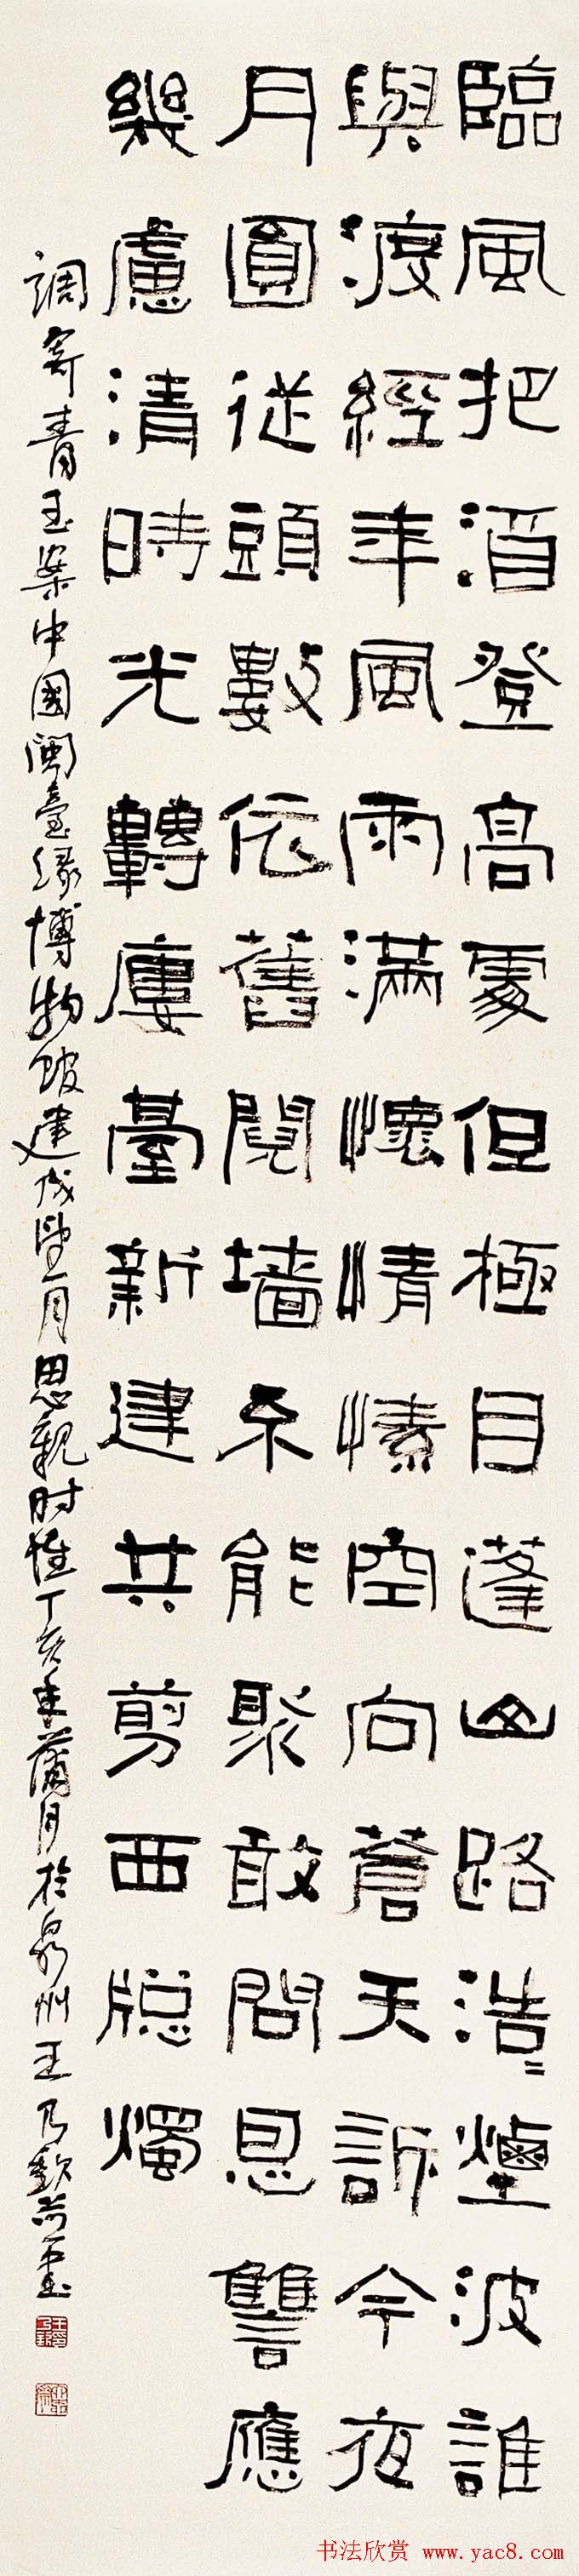 臨風把酒登高處但極目蓬山路浩〻煙波誰
與渡經年風雨滿懷情愫空向蒼天訴今夜
月圓從頭數依舊鬩墻不能聚敢問恩讐應
幾慮清時光轉廔臺新建共剪西牕燭
調寄青玉案中國閩臺緣博物館建成望月思親时惟丁亥年蒲月於泉州王乃欽并書
书法欣赏 www.yac8.com